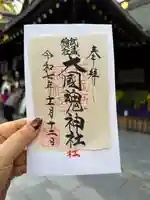 奉拝
武蔵
総社
大國魂神社
令和七年十二月十二日